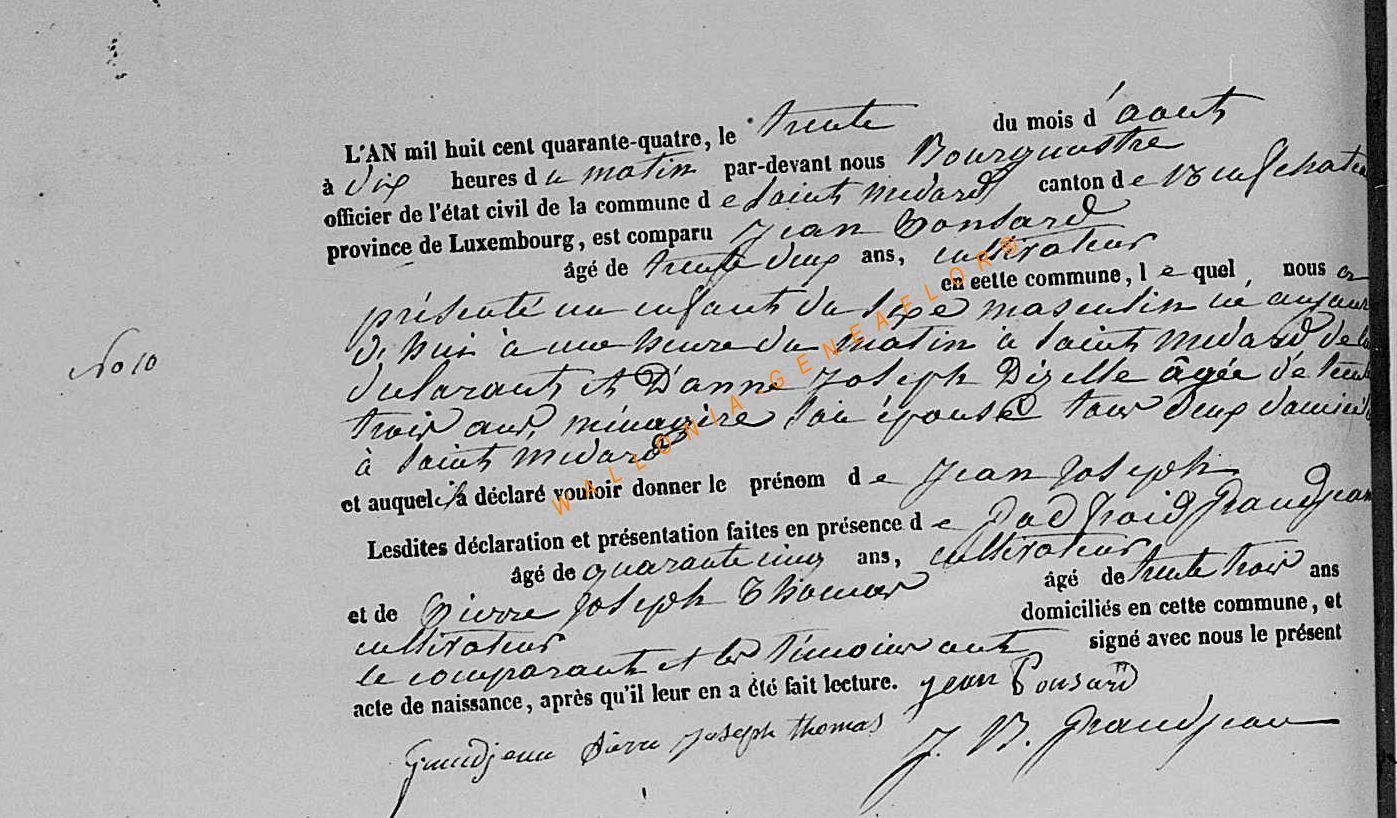 L'AN mil huit cent quarante-quatre, le trente du mois d'aout
à dix heures du matin par-devant nous Bourguestre
officier de l'état civil de la commune de Saint Medard canton de
province de Luxembourg, est comparu Jean Ponsard
âgé de trente deux ans, cultivateur
en cette commune, lequel nous a
présenté un enfant du sexe masculin né aujour
d'hui à une heure du matin à Saint Medard de
declarant et D'anne Joseph Dizelle âgée de trente
trois ans, ménagère son épouse tous deux domicil
à Saint Medard
et auquel il a déclaré vouloir donner le prénom de Jean Joseph
Lesdites déclaration et présentation faites en présence de Grandjean
âgé de quarante cinq ans, cultivateur
et de Pierre Joseph Thomas âgé de trente trois ans
cultivateur domiciliés en cette commune, et
le comparant et les témoins ont signé avec nous le présent
acte de naissance, après qu'il leur en a été fait lecture. Jean Ponsard
Grandjean Pierre Joseph Thomas J. B. Grandjean
No 10
WALLONIA GENEAFLOR®